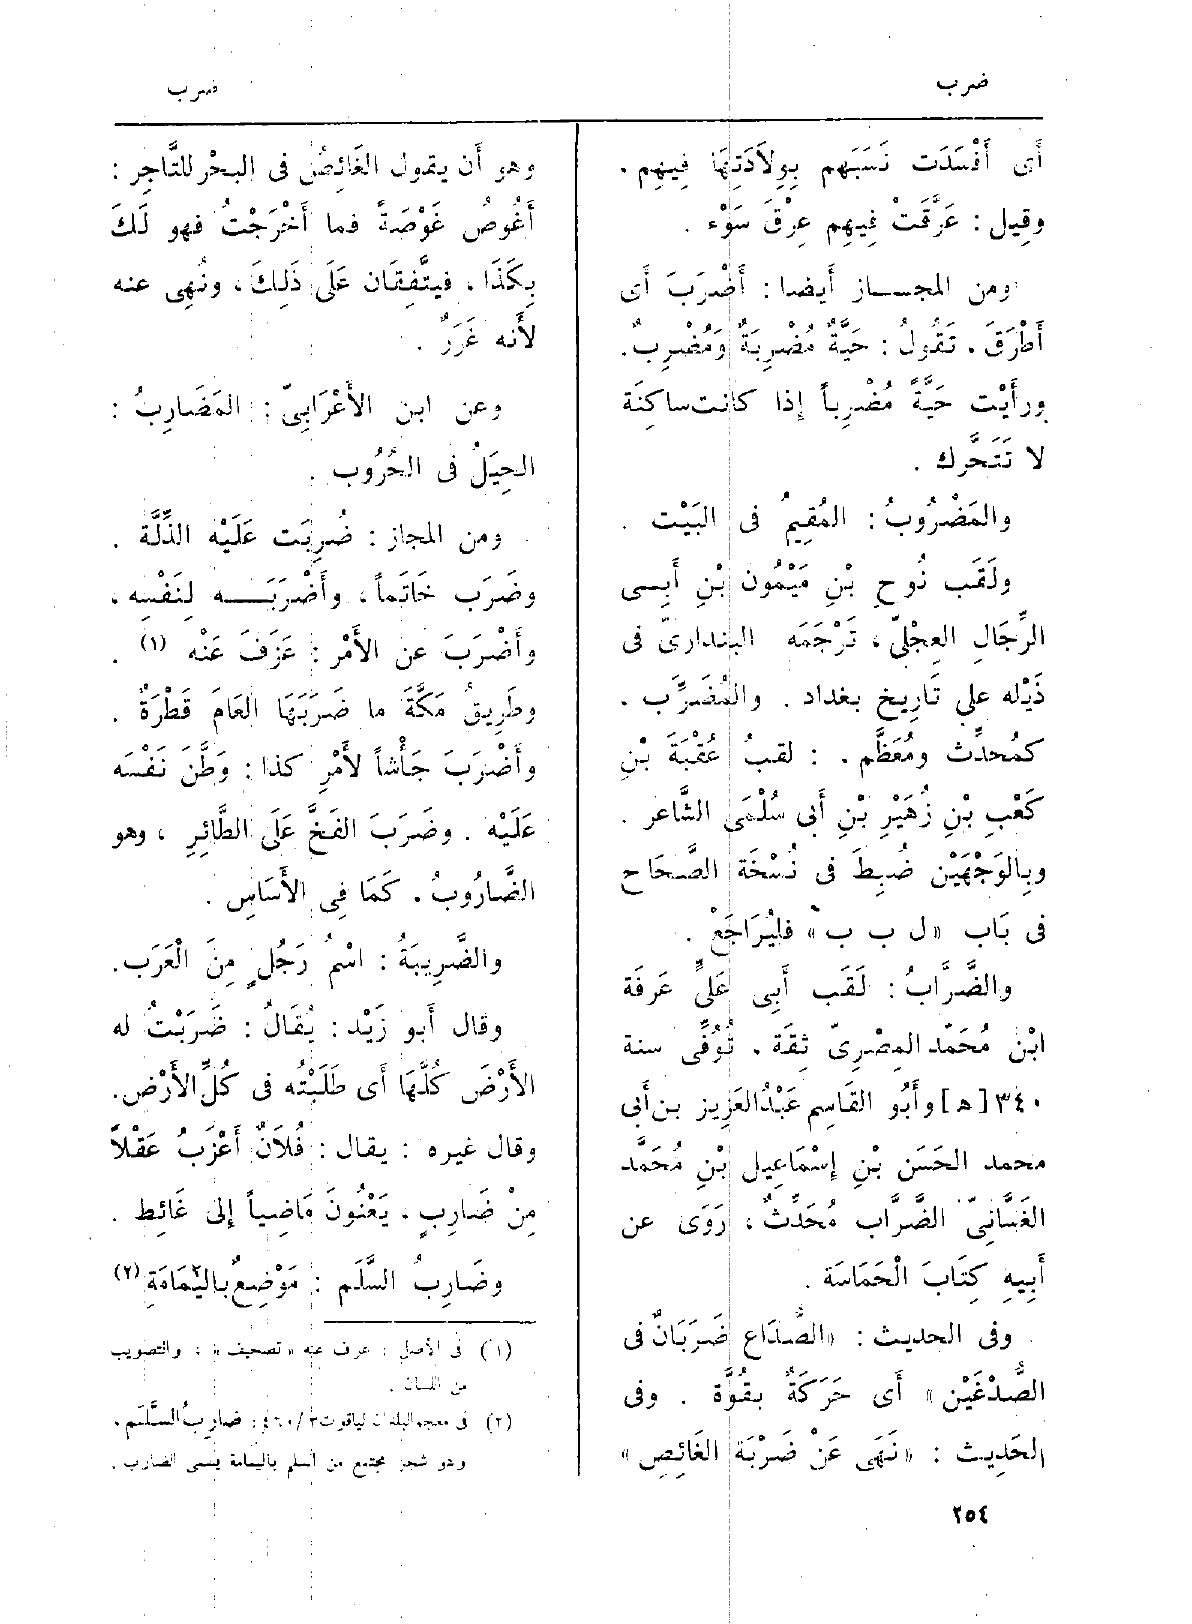 ضرب
ضرب
أى أَفْسَدَت نَسَبَهم بِوِلاَدَتِهَا فِيهِم .
وقِيل : عَرَّقَتْ فِيهِم عِرْقَ سَوْء .
ومن المجــاز أَيضا : أَضْرَبَ أَى
أَطْرَقَ . تَقُولُ : حَيَّةٌ مُضْرِبَةٌ وَمُضْرِبٌ.
ورأَيْت حَيَّةً مُضْرِباً إِذا كانت ساكِنَة
لا تَتَحَّرك .
والمَضْرُوبُ : المُقِيمُ فى البَيْت .
ولَقَب نُوحِ بْنِ مَيْمُون بْنِ أَبِــى
الرِّجَالِ العِجْلىّ ، تَرْجَمَه البندارىّ فى
ذَيْله على تَارِيخ بغداد . والمُضَرِّب .
كمُحدِّث ومُعَظَّم . : لقبُ عُقبَةَ بْنِ
كَعْبِ بْنِ زُهَيْرِ بْنِ أَبى سُلْمَى الشَّاعر .
وبِالوَجْهَيْن ضُبِطَ فى نُسْخَة الصَّحَاح
فى بَاب «ل ب ب» فليُرَاجَعْ .
والضَّرَّابُ : لَقَب أَبِى عَلىٍّ عَرفَة
ابْنِ مُحَمَّد المِصْرِىّ ثِقَة . تُوُفِّى سنة
٣٤٠ [ه] وأَبُو القَاسِم عَبْدُ العَزِيز بن أبى
محمد الحَسَن بْنِ إِسْمَاعِيل بْنِ مُحَمَّد
الغَسَّانِىّ الضَّرَّاب مُحَدِّثٌ ، رَوَى عن
أَبِيهِ كِتَابَ الْحَمَاسَة .
وفى الحديث : «الصُّدَاع ضَرَبَانٌ فى
الصُّدْغَيْن» أَى حَرَكَةٌ بقُوَّة . وفى
الحَدِيث : «نَهَى عَنْ ضَرْبَة الغَائِص»
٢٥٤
وهو أَن يقول الغَائِصُ فى البحْر للتَّاجِر :
أَغُوصُ غَوْصَةً فما أَخْرَجْتُ فهو لَكَ
بِكَذَا ، فيتَّفِقَان عَلَى ذَلِكَ ، ونُهِى عنه
لأَنه غَرَرٌ .
وعن ابن الأَعْرَابِىّ : المَضَارِبُ :
الحِيَلُ فى الحُرُوب .
ومن المجاز : ضُرِبَت عَلَيْه الذِّلَّة .
وضَرَب خَاتَماً ، وأَضْرَبَــه لِنَفْسِه ،
وأَضْرَبَ عن الأَمْر : عَزَفَ عَنْه (١) .
وطَرِيقُ مَكَّةَ ما ضَرَبَهَا العَامَ قَطْرَةٌ .
وأَضْرَبَ جَأْشاً لأَمْرِ كذا : وَطَّنَ نَفْسَه
عَلَيْه . وضَرَبَ الفَخَّ عَلَى الطَّائِرِ ، وهو
الضَّارُوبُ . كَمَا فِى الأَسَاسِ .
والضَّرِيبَةُ : اسْمُ رَجُلٍ مِنَ الْعَرَب.
وقال أَبو زَيْد : يُقَالُ : ضَرَبْتُ له
الأَرْضَ كُلَّهَا أَى طَلَبْتُه فى كُلِّ الأَرْض.
وقال غيره : يقال : فُلاَنٌ أَعْزَبُ عَقْلاً
مِنْ ضَارِبٍ . يَعْنُونَ مَاضِياً إِلى غَائِط .
وضَارِبُ السَّلَم : مَوْضِعٌ بِاليَمَامَةِ (٢)
(١) فى الأصل : عرف عنه «تصحيف» ، والتصويب
من اللسان .
(٢) فى معجم البلدان لياقوت ٤٦٠/٣ : ضاربُ السَّلَم .
وهو شجر مجتمع من السلم باليمامة يسمى الضارب .